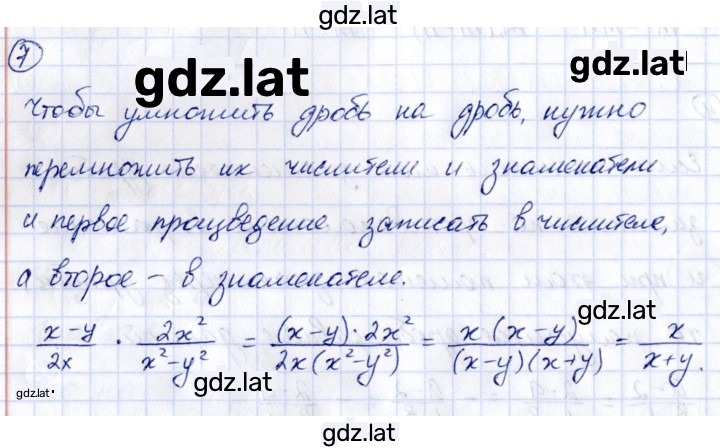 gdz.lat
7
gdz.lat gdz.lat
Чтобы умножить дробь на дробь, нужно
перемножить их числители и знаменатели
и первое произведение записать в числителе,
а второе – в знаменателе.
gdz.lat
(x-y)/2x · 2x²/(x²-y²) = (x-y)·2x²/2x(x²-y²) = x(x-y)/(x-y)(x+y) = x/(x+y).
gdz.lat gdz.lat
gdz.lat